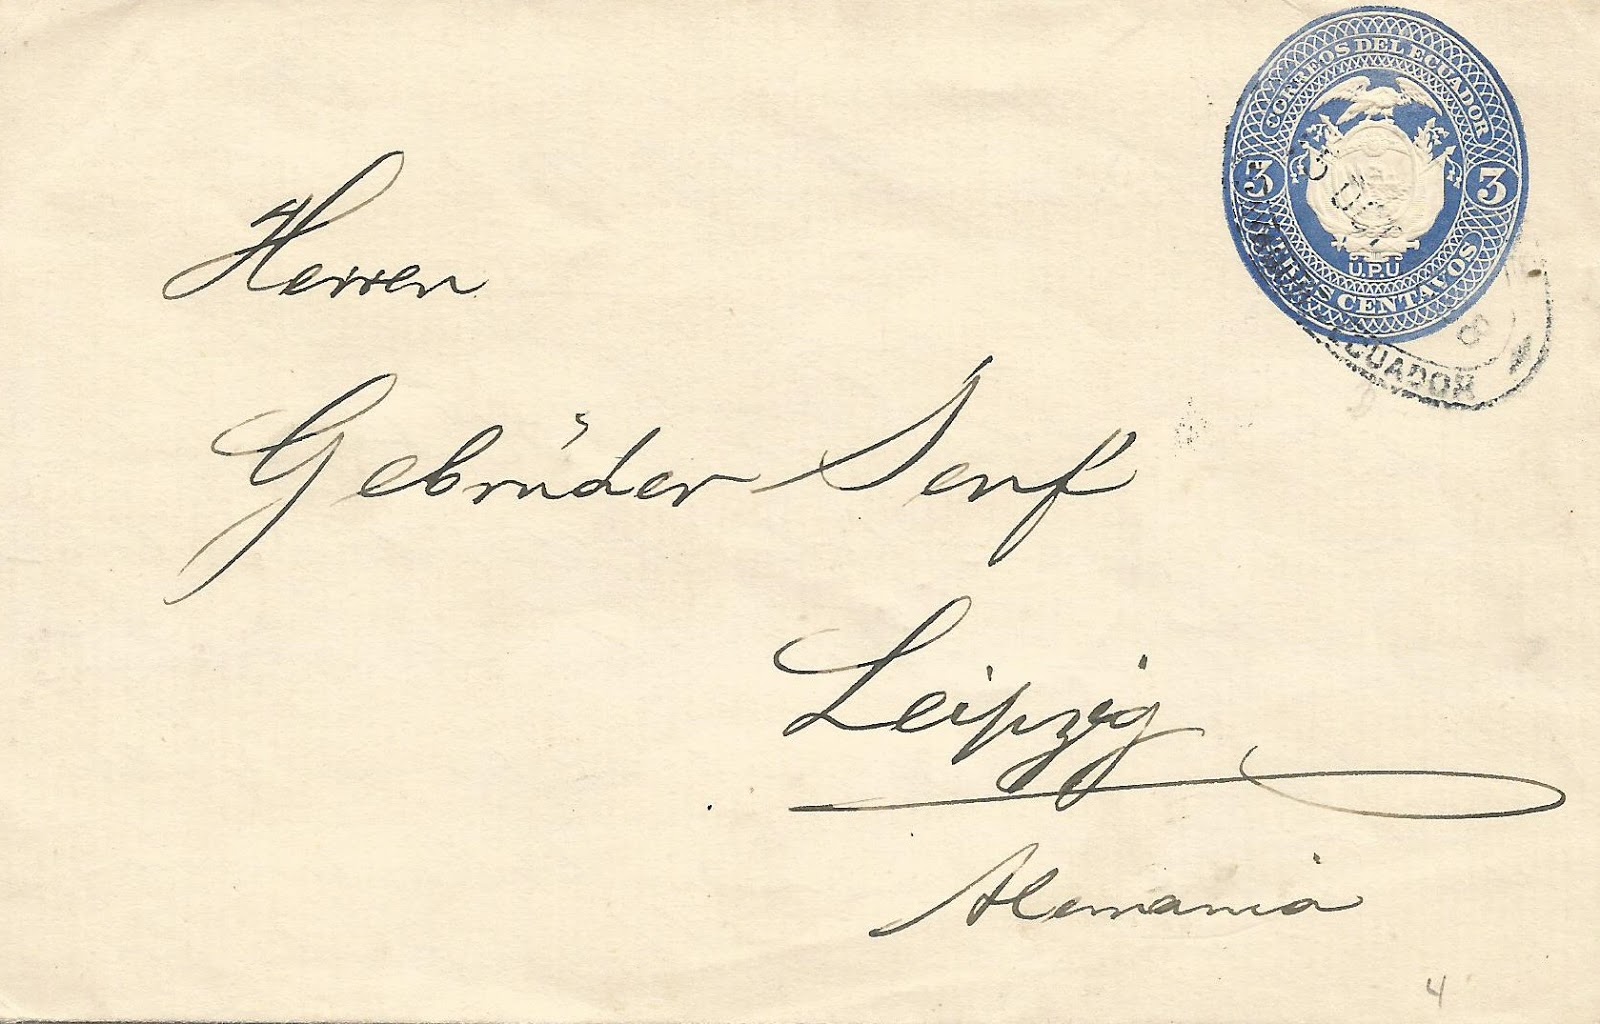 CORREOS DEL ECUADOR
3 3
U.P.U
TRES CENTAVOS
ECUADOR
8
Herren
Gebrüder Senf
Leipzig
Alemania
4